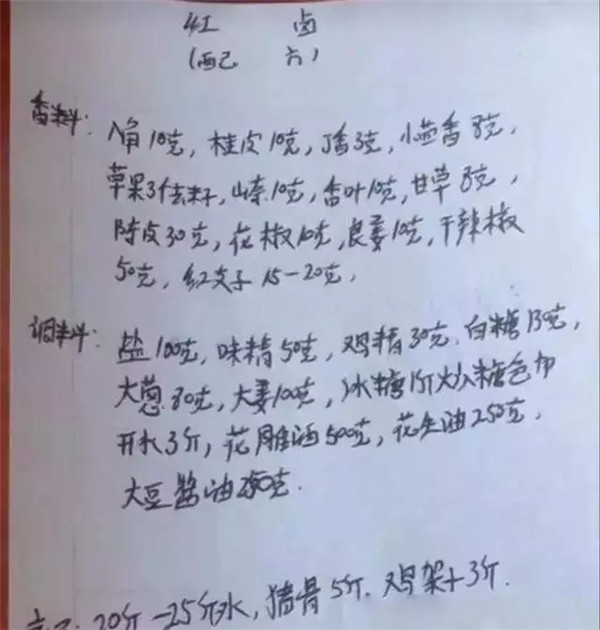 红 卤
(配方)
香料: 八角10克, 桂皮10克, 丁香3克, 小茴香8克,
草果3个去籽, 山奈10克, 香叶10克, 甘草8克,
陈皮30克, 花椒10克, 良姜10克, 干辣椒
50克, 红支子 15-20克,
调料: 盐100克, 味精50克, 鸡精30克, 白糖130克,
大葱80克, 大姜100克, 冰糖1斤炒糖色加
开水3斤, 花雕酒500克, 花生油250克,
大豆酱油250克.
20斤-25斤水, 猪骨5斤. 鸡架+3斤.